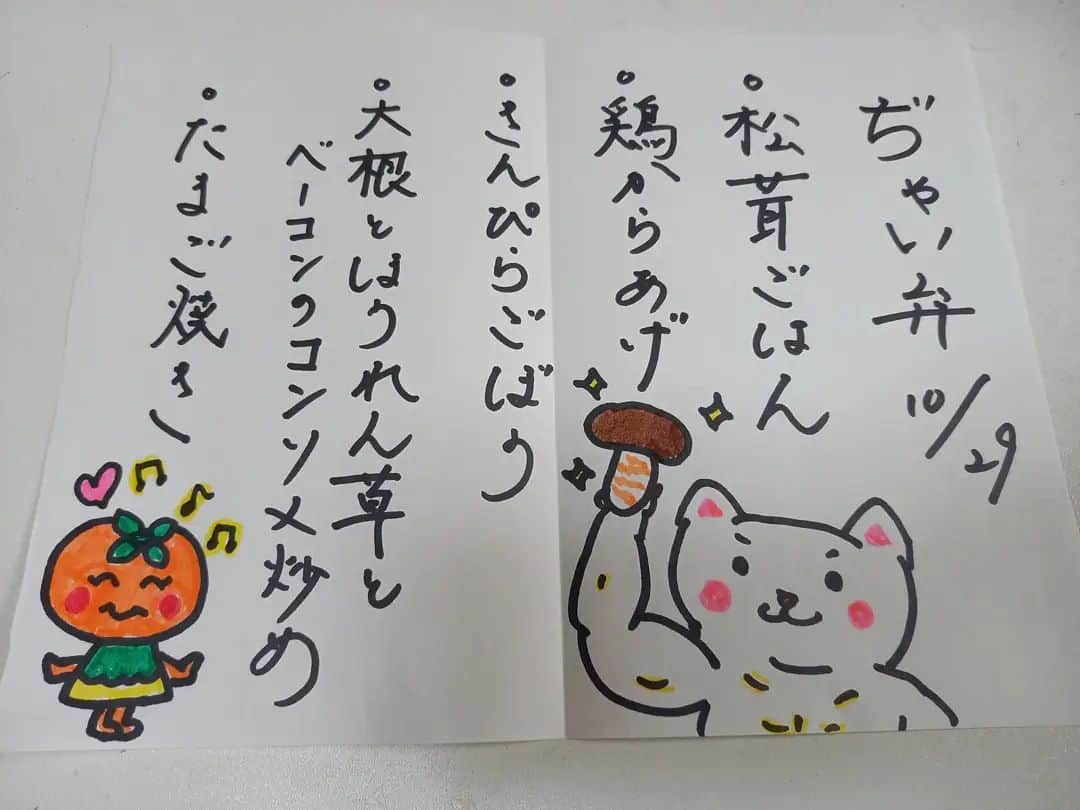 ぢゃい弁 10/29
• 松茸ごはん
• 鶏からあげ
• きんぴらごぼう
• 大根とほうれん草と
ベーコンのコンソメ炒め
• たまご焼き